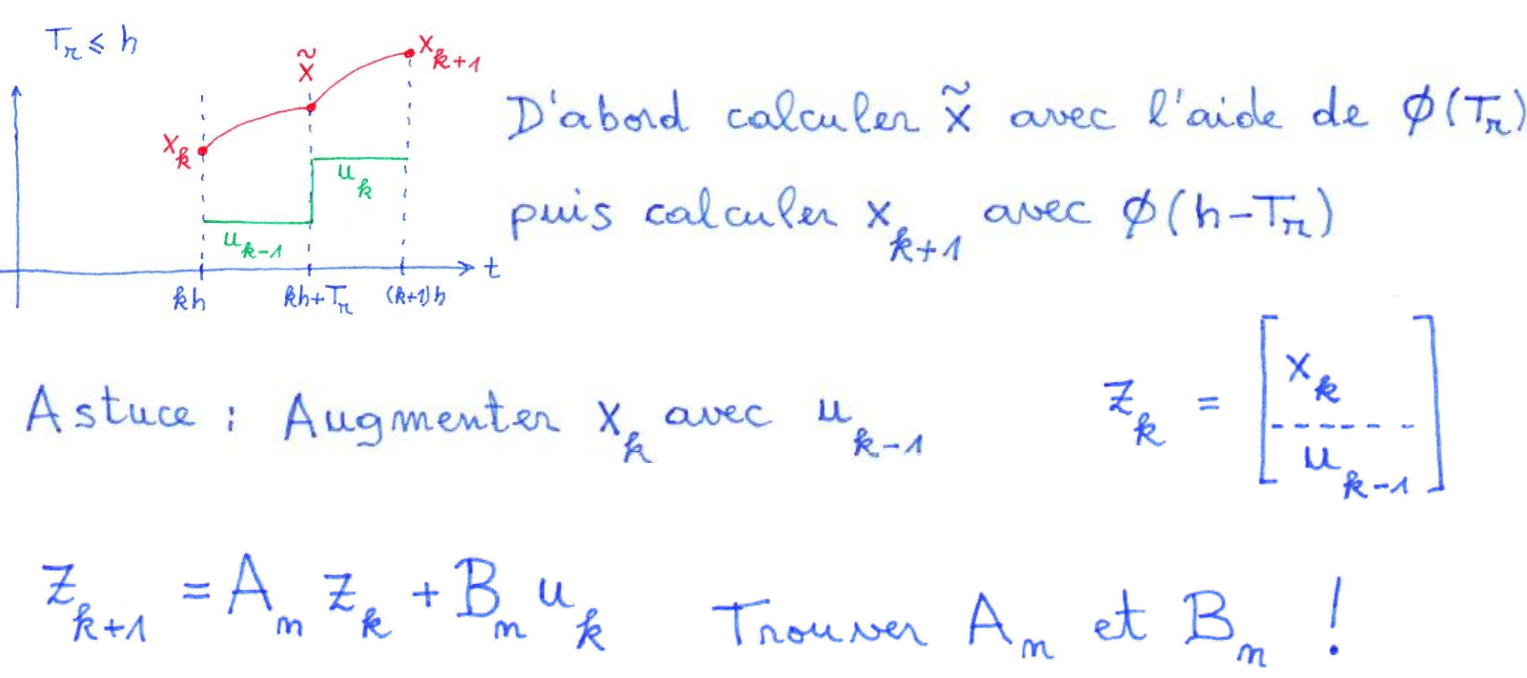 T_r ≤ h
x_k
x̃
x_{k+1}
u_{k-1}
u_k
t
kh
kh+T_r
(k+1)h
D'abord calculer x̃ avec l'aide de ϕ(T_r)
puis calculer x_{k+1} avec ϕ(h-T_r)
Astuce : Augmenter x_k avec u_{k-1}
z_k = [x_k / u_{k-1}]
z_{k+1} = A_n z_k + B_n u_k Trouver A_n et B_n !